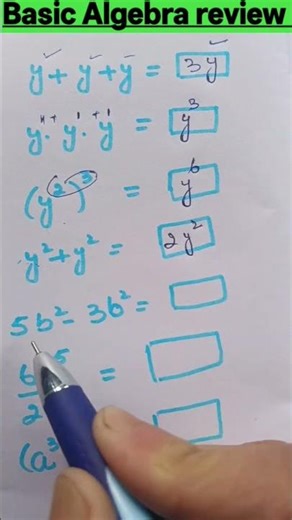 Basic Algebra review
y + y + y = 3y
y · y · y = y³
(y²)³ = y⁶
y² + y² = 2y²
5b² - 3b² =
6 5
2 =
(a³